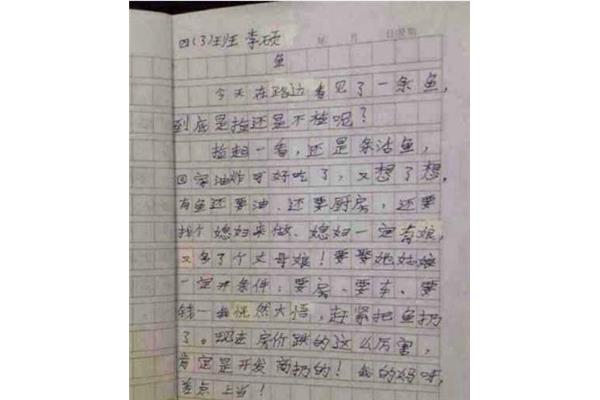 四(3)班 李硕
年 月 日星期
鱼
今天在路边看见了一条鱼,
到底是捡还是不捡呢?
捡起一看,还是条活鱼,
回家油炸可好吃了,又想了想,
有鱼还要油、还要厨房,还要
找个媳妇来做、媳妇一定有娘,
又多了个丈母娘!要娶她姑娘
一定开条件:要房、要车、要
钱一我恍然大悟,赶紧把鱼扔
了。现在房价跌的这么厉害,
肯定是开发商扔的!我的妈呀,
差点上当!